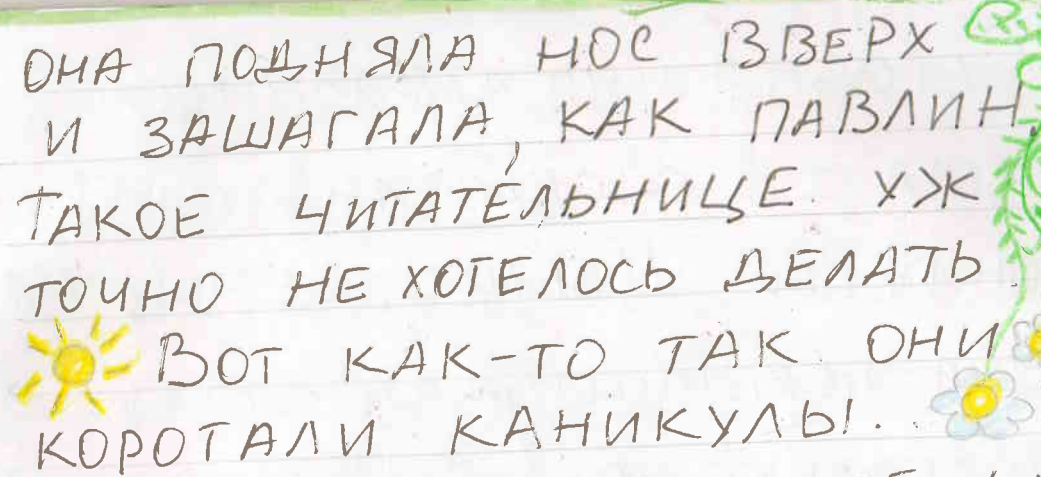 ОНА ПОДНЯЛА НОС ВВЕРХ
И ЗАШАГАЛА, КАК ПАВЛИН.
ТАКОЕ ЧИТАТЕЛЬНИЦЕ УЖ
ТОЧНО НЕ ХОТЕЛОСЬ ДЕЛАТЬ.
ВОТ КАК-ТО ТАК ОНИ
КОРОТАЛИ КАНИКУЛЫ..